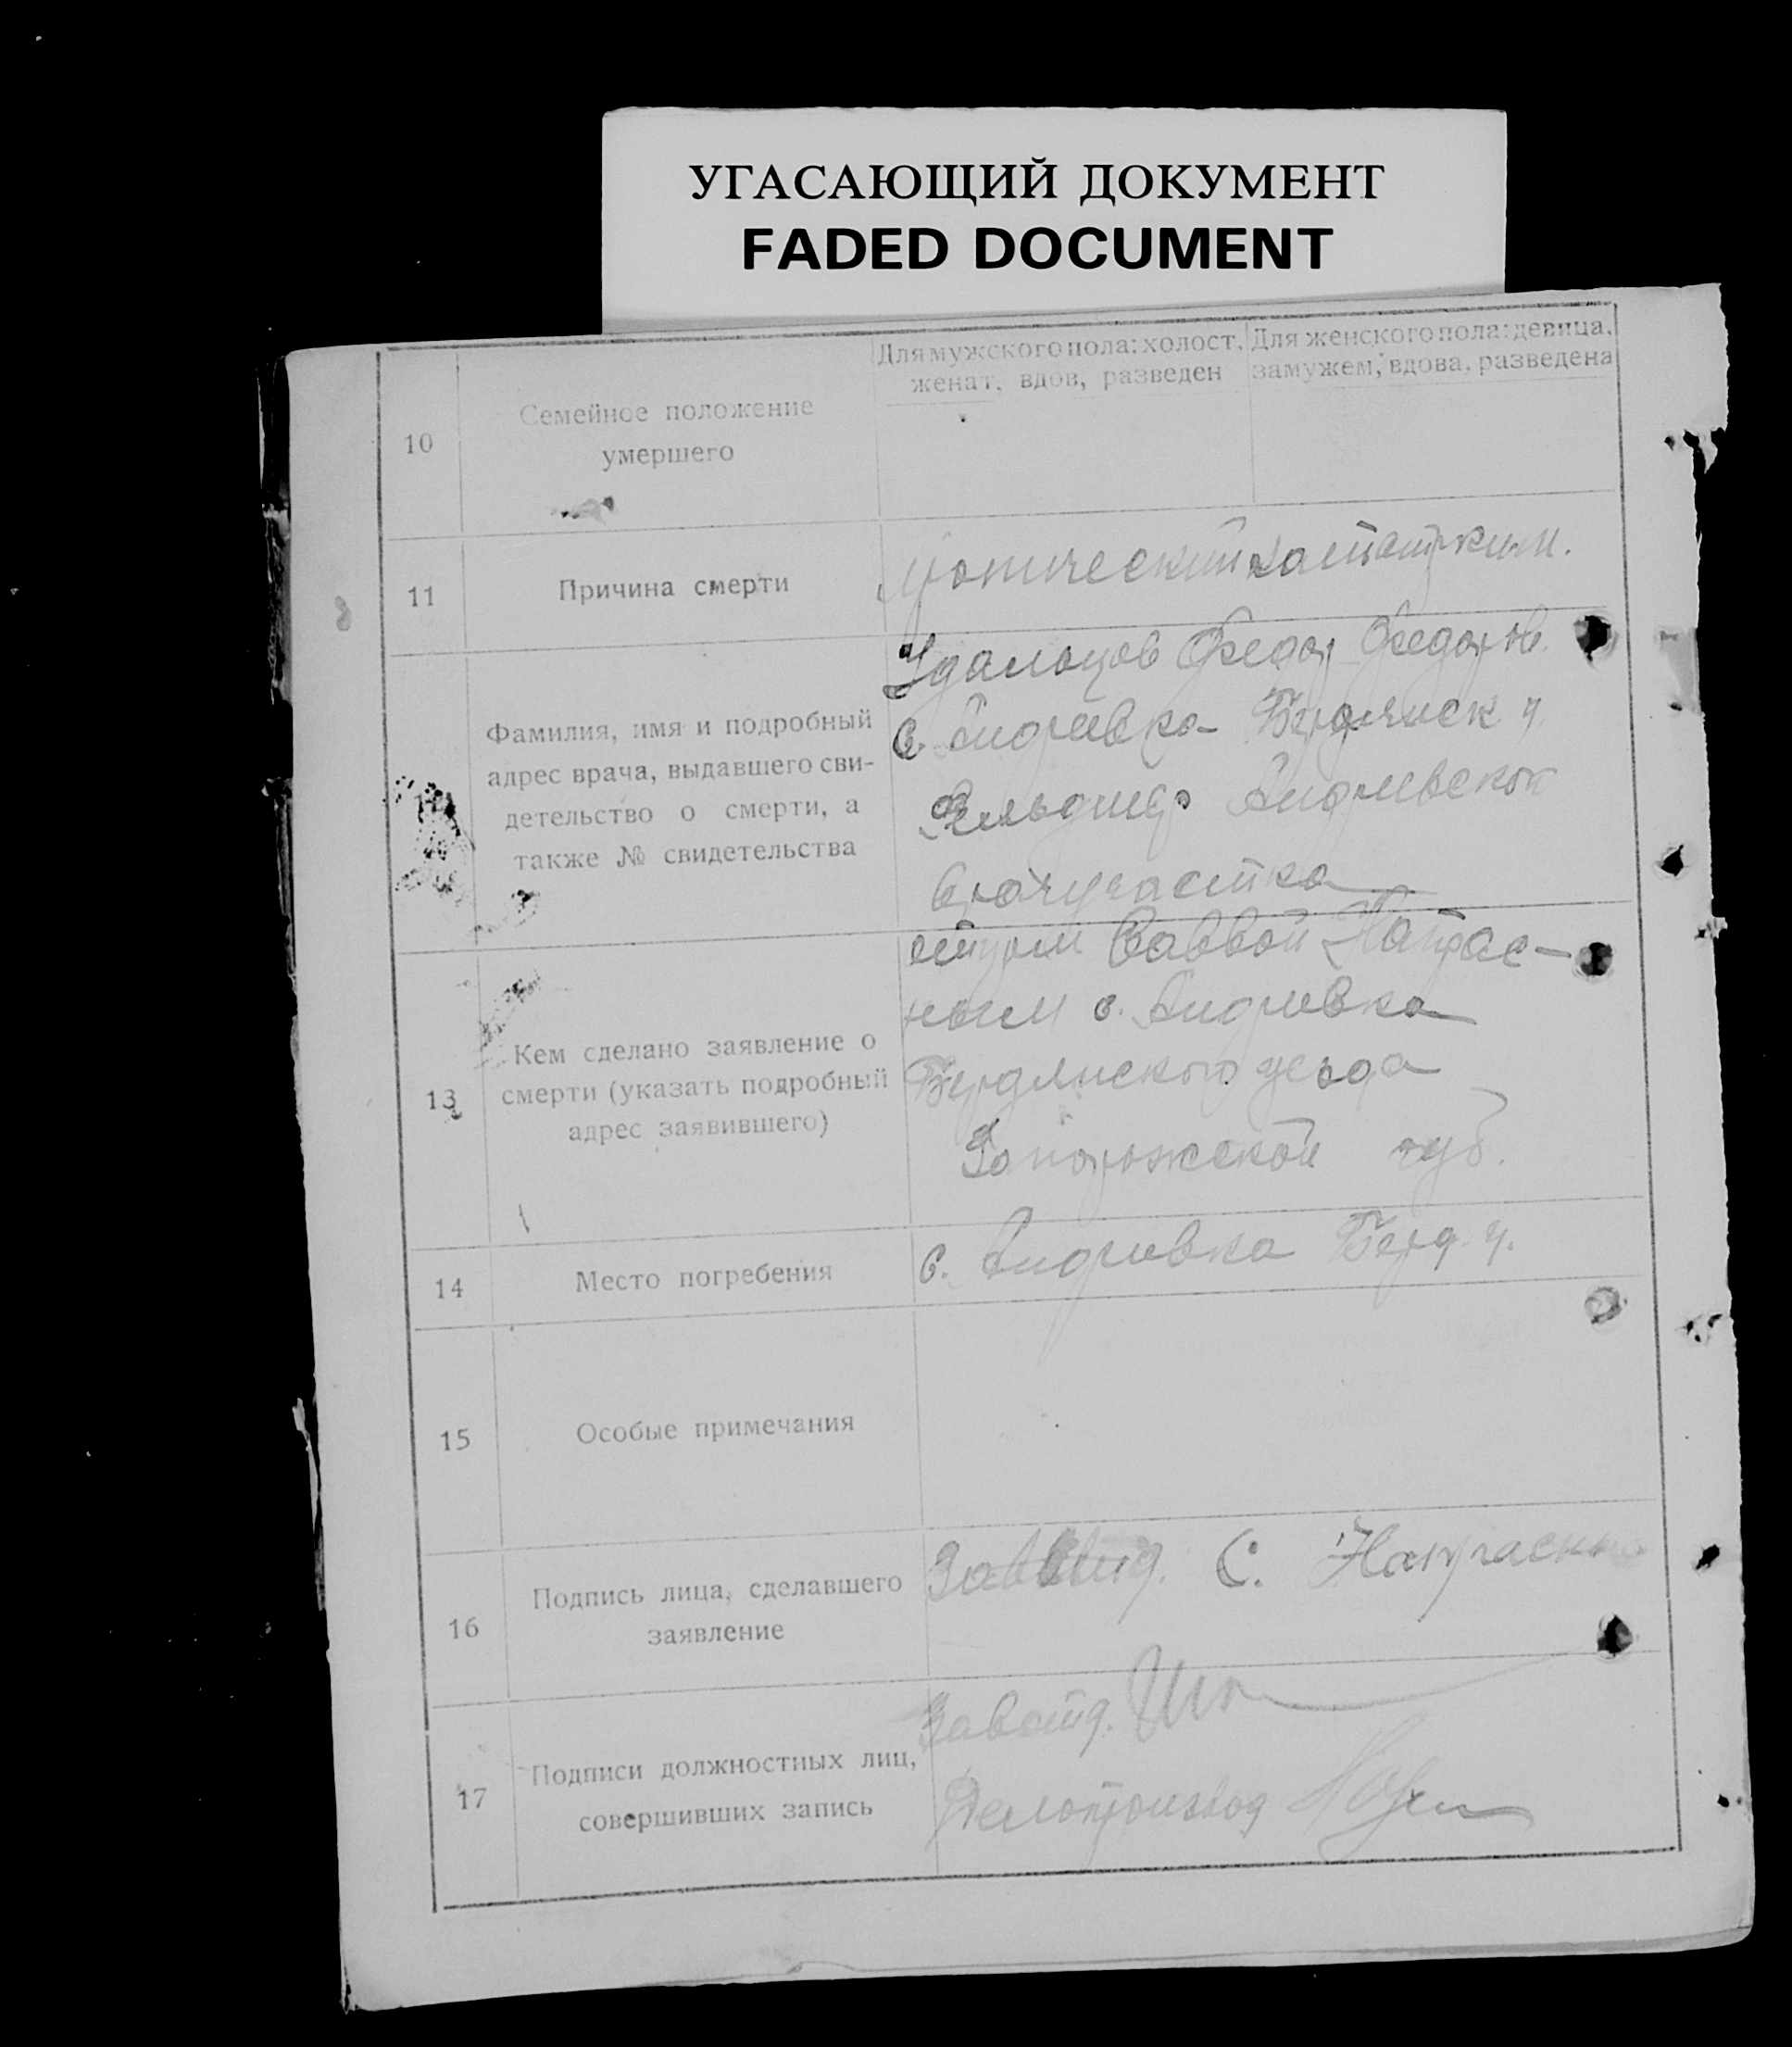 УГАСАЮЩИЙ ДОКУМЕНТ
FADED DOCUMENT
10
Семейное положение
умершего
Для мужского пола: холост,
женат, вдов, разведен
Для женского пола: девица,
замужем, вдова, разведена
11
Причина смерти
12
Фамилия, имя и подробный
адрес врача, выдавшего сви-
детельство о смерти, а
также № свидетельства
Удальцов Федор Федоров.
с. Андреевка Бердянск у.
Фельдшер Андреевск
Врачучастка
13
Кем сделано заявление о
смерти (указать подробный
адрес заявившего)
отцом Саввой Напрас-
ным с. Андреевка
Бердянского уезда
Запорожской губ.
14
Место погребения
с. Андреевка Берд. у.
15
Особые примечания
16
Подпись лица, сделавшего
заявление
С. Напрасны
17
Подписи должностных лиц,
совершивших запись
Завотд.
Делопроизвод